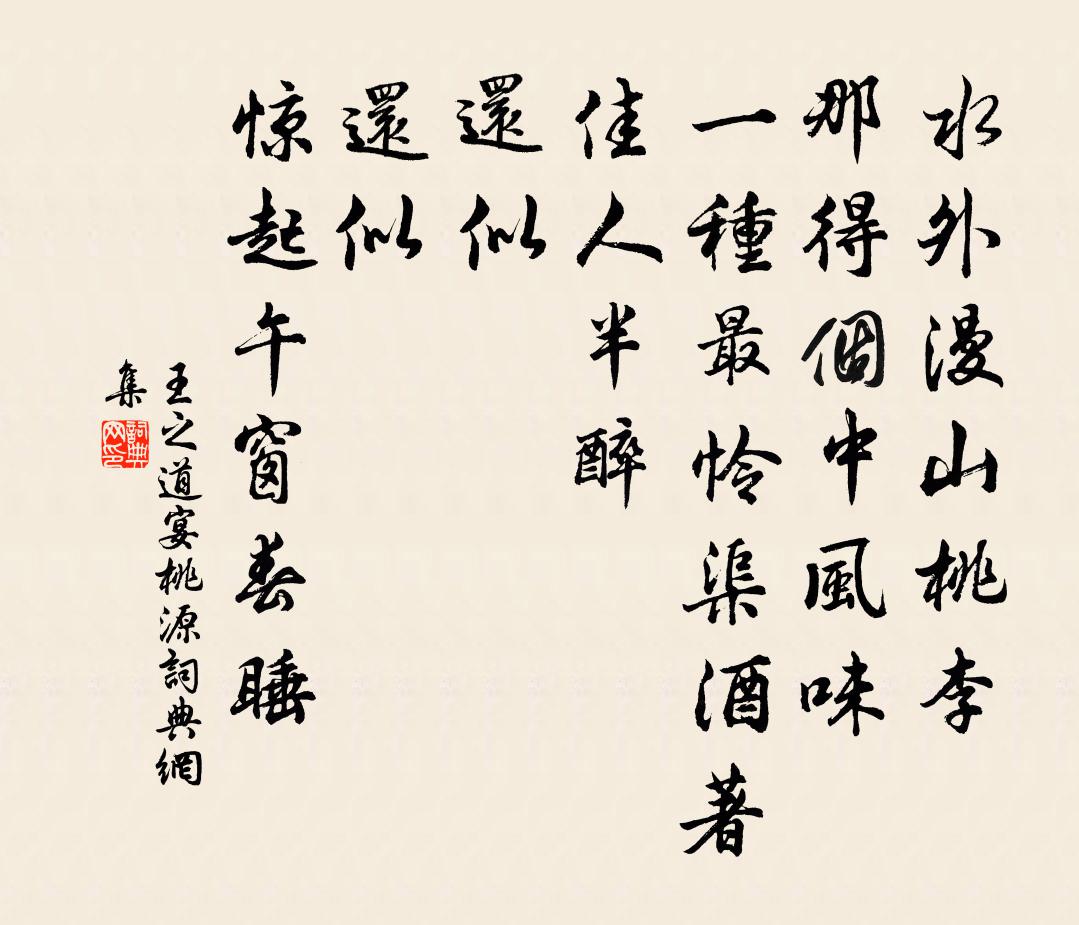 水外漫山桃李
那得個中風味
一種最怜渠酒著
佳人半醉
還似
還似
惊起午窗春睡
王之道宴桃源詞典網
集
詞典
网印